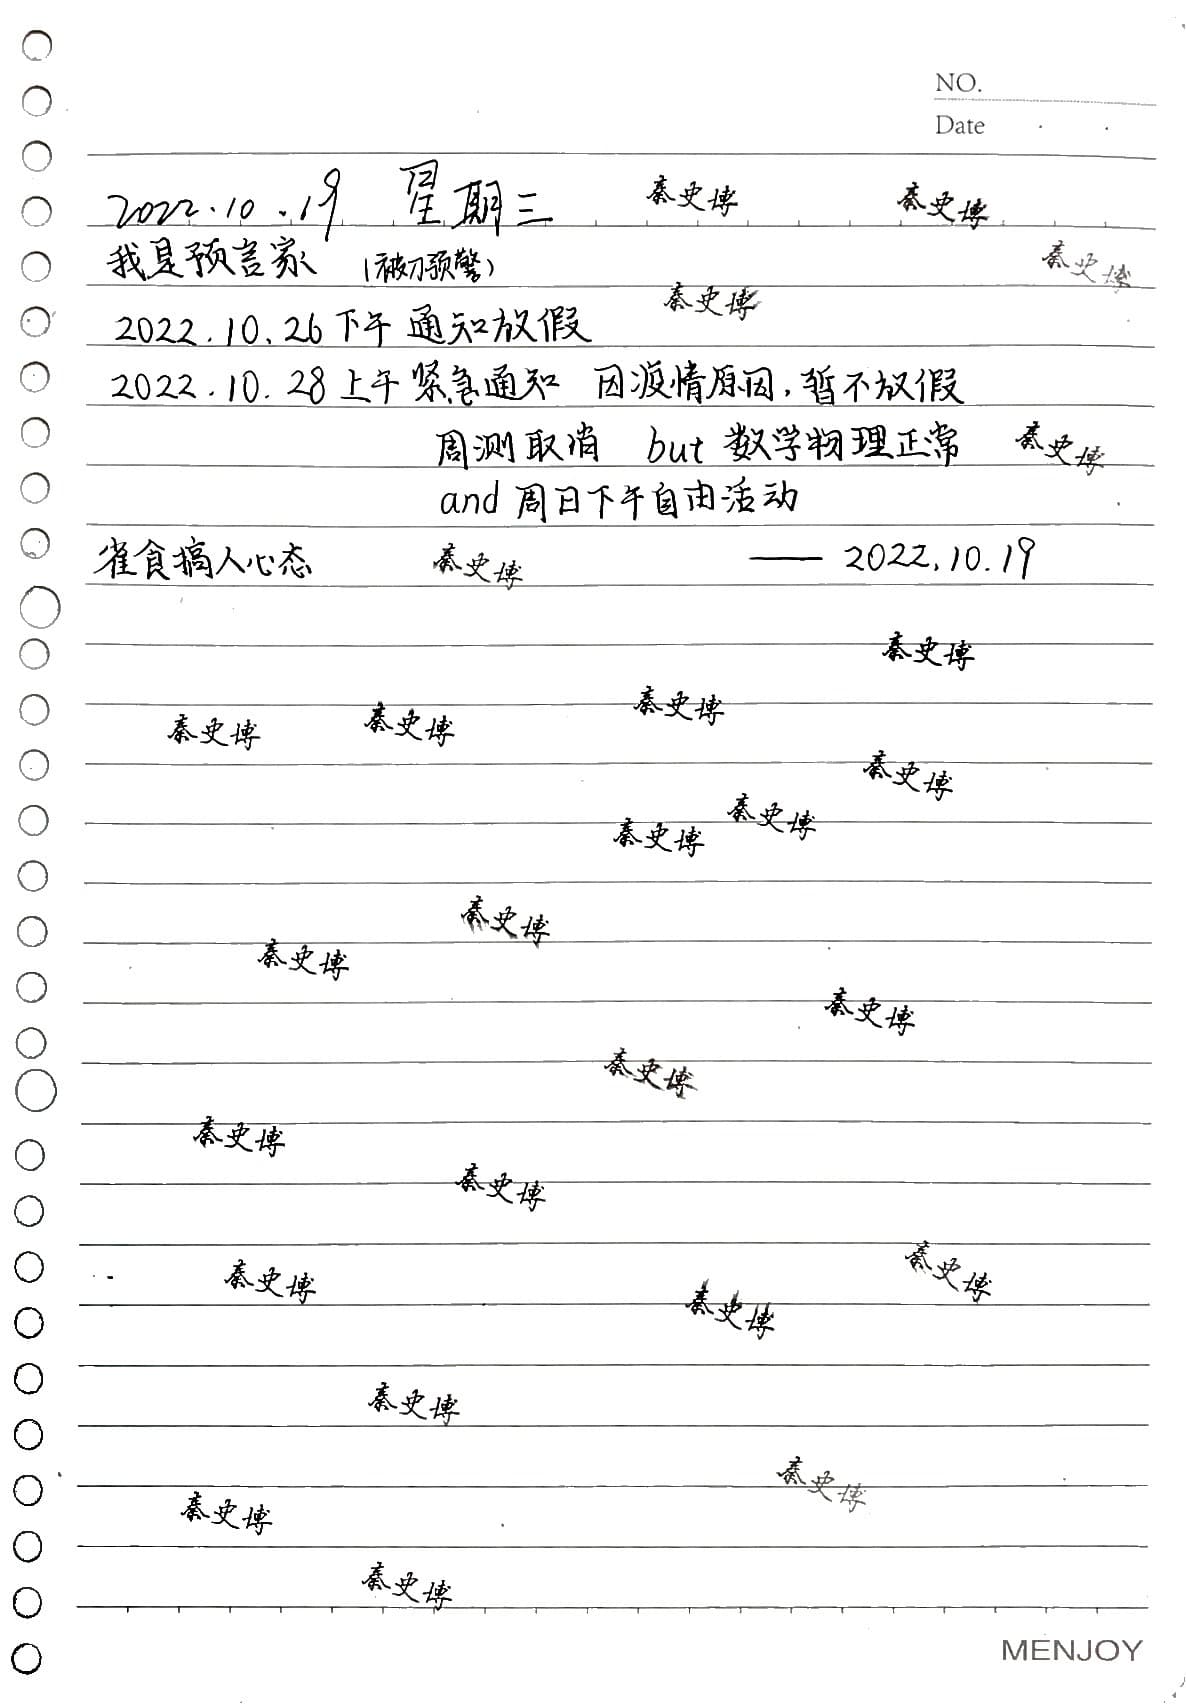 NO.
Date
2022.10.19 星期三 秦史博 秦史博
我是预言家 (被刀预警) 秦史博
秦史博
2022.10.26下午 通知放假
2022.10.28上午 紧急通知 因疫情原因,暂不放假
周测取消 but 数学物理正常 秦史博
and 周日下午自由活动
雀食搞人心态 秦史博 —— 2022.10.19
秦史博
秦史博 秦史博 秦史博
秦史博
秦史博 秦史博
秦史博
秦史博
秦史博
秦史博
秦史博
秦史博
秦史博 秦史博
秦史博
秦史博
秦史博
秦史博
秦史博
MENJOY